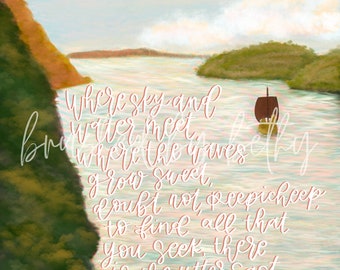 where sky and
water meet,
where the waves
grow sweet,
doubt not, reepicheep
to find all that
you seek, there
is the utter east